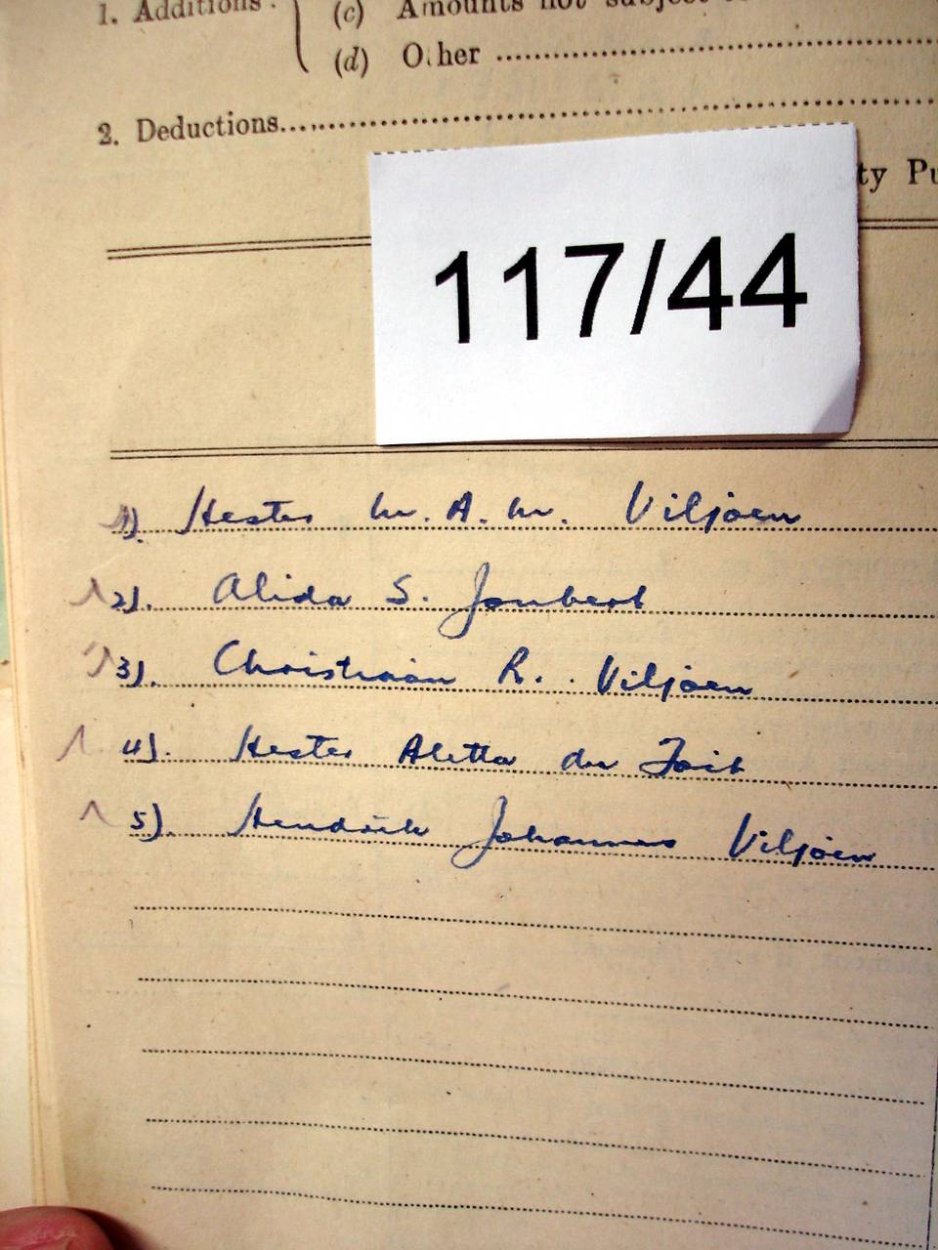 1. Additions: (c) Amounts not subject
(d) Other
2. Deductions
ty Pu
117/44
1) Hester M. A. M. Viljoen
2). Alida S. Joubert
3). Christiaan R. Viljoen
4). Hester Aletta du Toit
5). Hendrik Johannes Viljoen